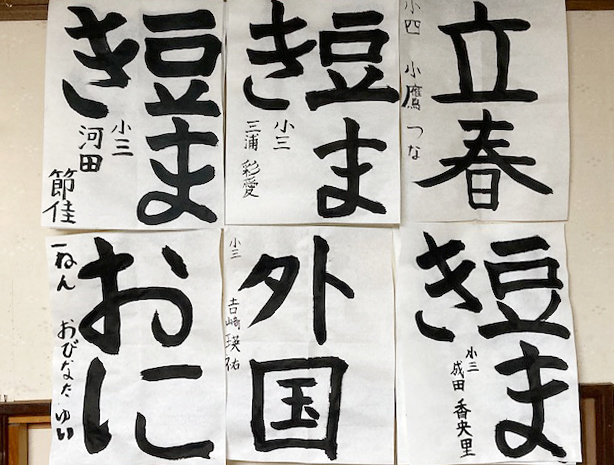 豆ま
き
小三
河田
節佳
豆ま
き
小三
三浦 彩愛
立春
小四 小鷹 つな
おに
一ねん おびなた ゆい
外国
小三 吉崎 瑛祐
豆ま
き
小三
成田 香央里